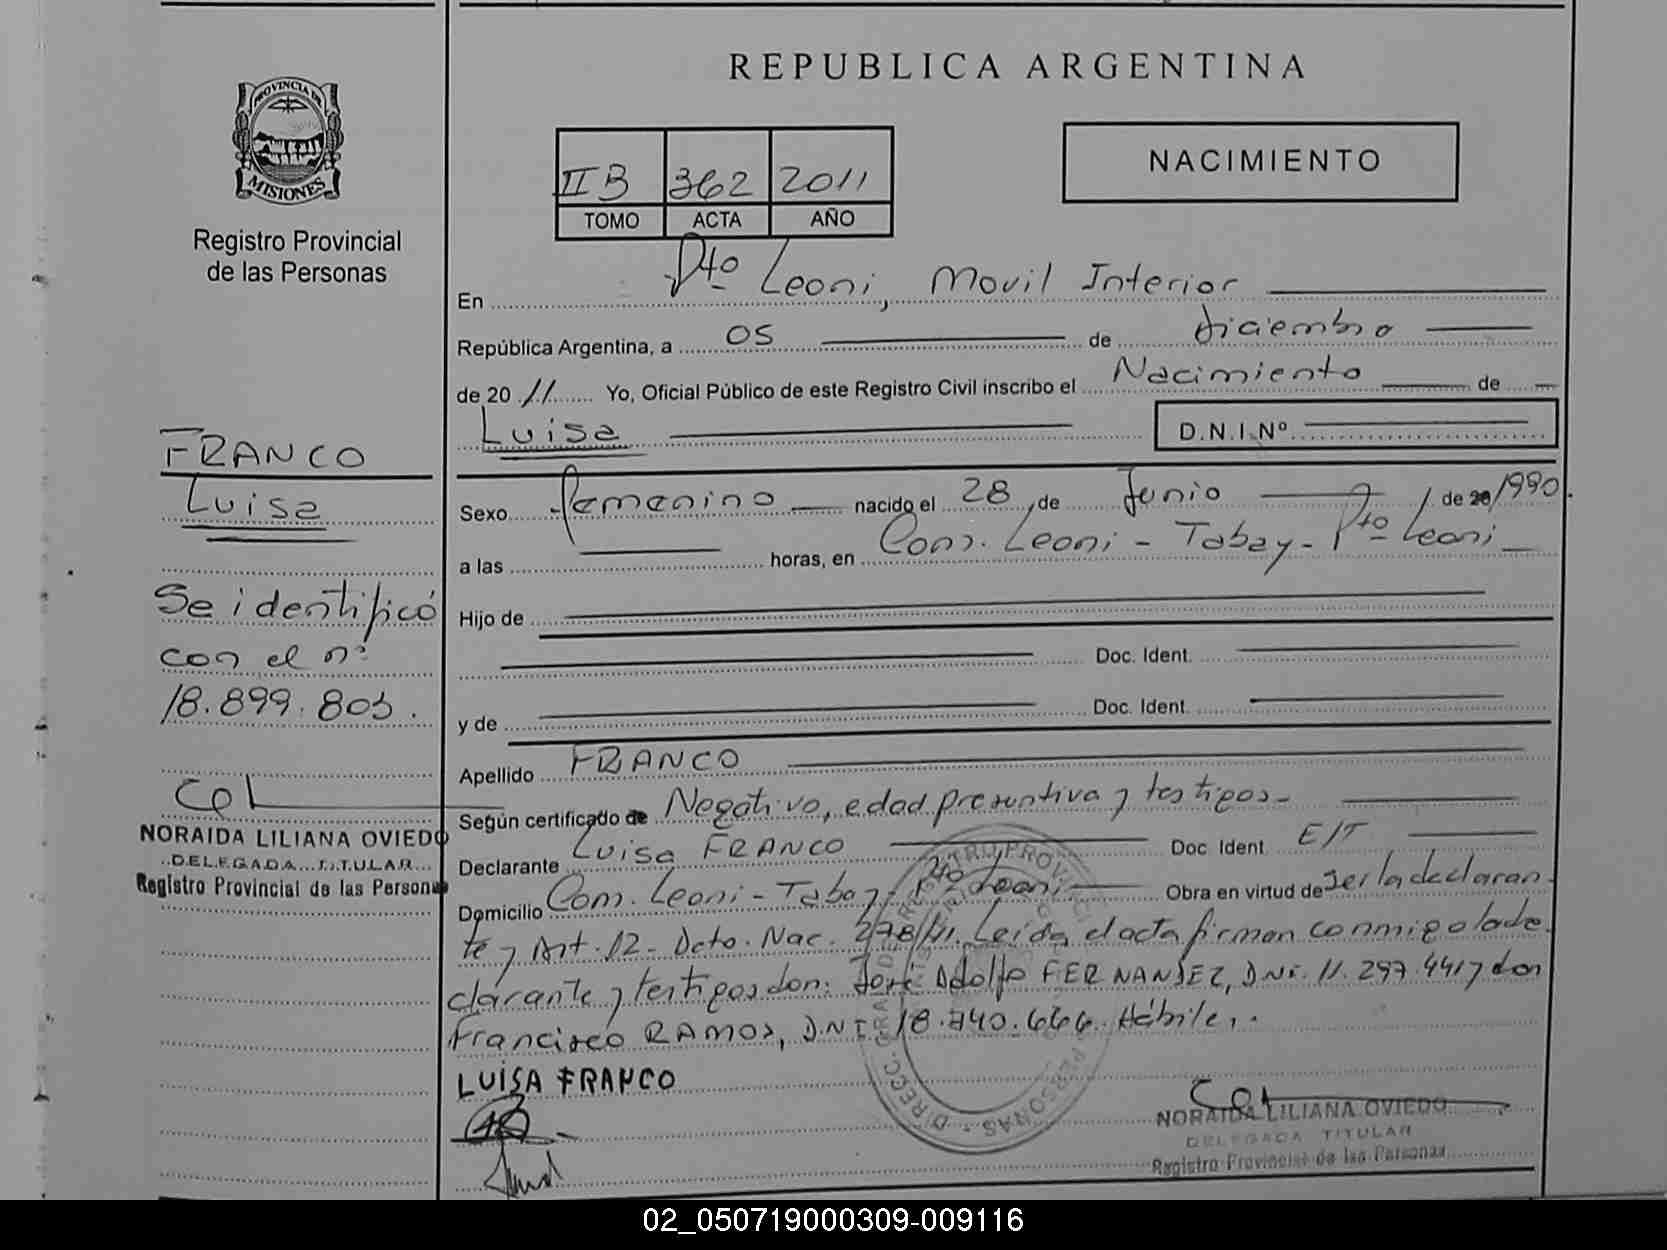 REPUBLICA ARGENTINA
PROVINCIA DE
MISIONES
Registro Provincial
de las Personas
NACIMIENTO
II B 362 2011
TOMO ACTA AÑO
En Pto Leoni, Movil Interior
República Argentina, a 05 de diciembre
de 20 11 Yo, Oficial Público de este Registro Civil inscribo el Nacimiento de
Luisa D.N.I. Nº
FRANCO
Luisa
Se identificó
con el nº
18.899.803.
NORAIDA LILIANA OVIEDO
DELEGADA TITULAR
Registro Provincial de las Personas
Sexo femenino nacido el 28 de Junio de 20 1990.
a las horas, en Com. Leoni - Tabay - Pto Leoni
Hijo de
Doc. Ident.
y de Doc. Ident.
Apellido FRANCO
Según certificado de Negativo, edad presuntiva y testigos
Declarante Luisa FRANCO Doc. Ident. E/T
Domicilio Com. Leoni - Tabay - Pto Leoni Obra en virtud de ser la declaran
te y Art. 12 - Dcto. Nac. 278/11. Leída el acta firman conmigo la de
clarante y testigos don: José Adolfo FERNANDEZ, DNI. 11.297.441 y don
Francisco RAMOS, D.N.I. 18.740.666. Hábiles.
LUISA FRANCO
NORAIDA LILIANA OVIEDO
DELEGADA TITULAR
Registro Provincial de las Personas
02_050719000309-009116